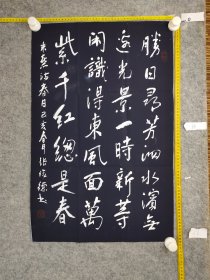 勝日尋芳泗水濱無
邊光景一時新等
閑識得東風面萬
紫千紅總是春
朱熹詩春日己亥春月